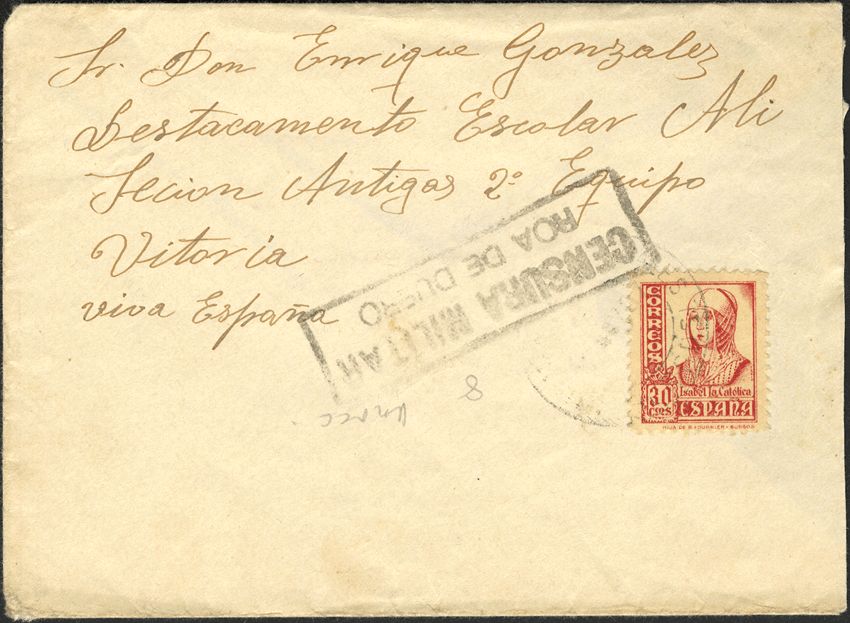 Sr. Don Enrique Gonzalez
Destacamento Escolar Ali
Secion Antigas 2º Equipo
Vitoria
viva España
CENSURA MILITAR
ROA DE DUERO
CORREOS
30 CTMS
Isabel la Católica
ESPAÑA
HIJA DE B. FOURNIER - BURGOS
8